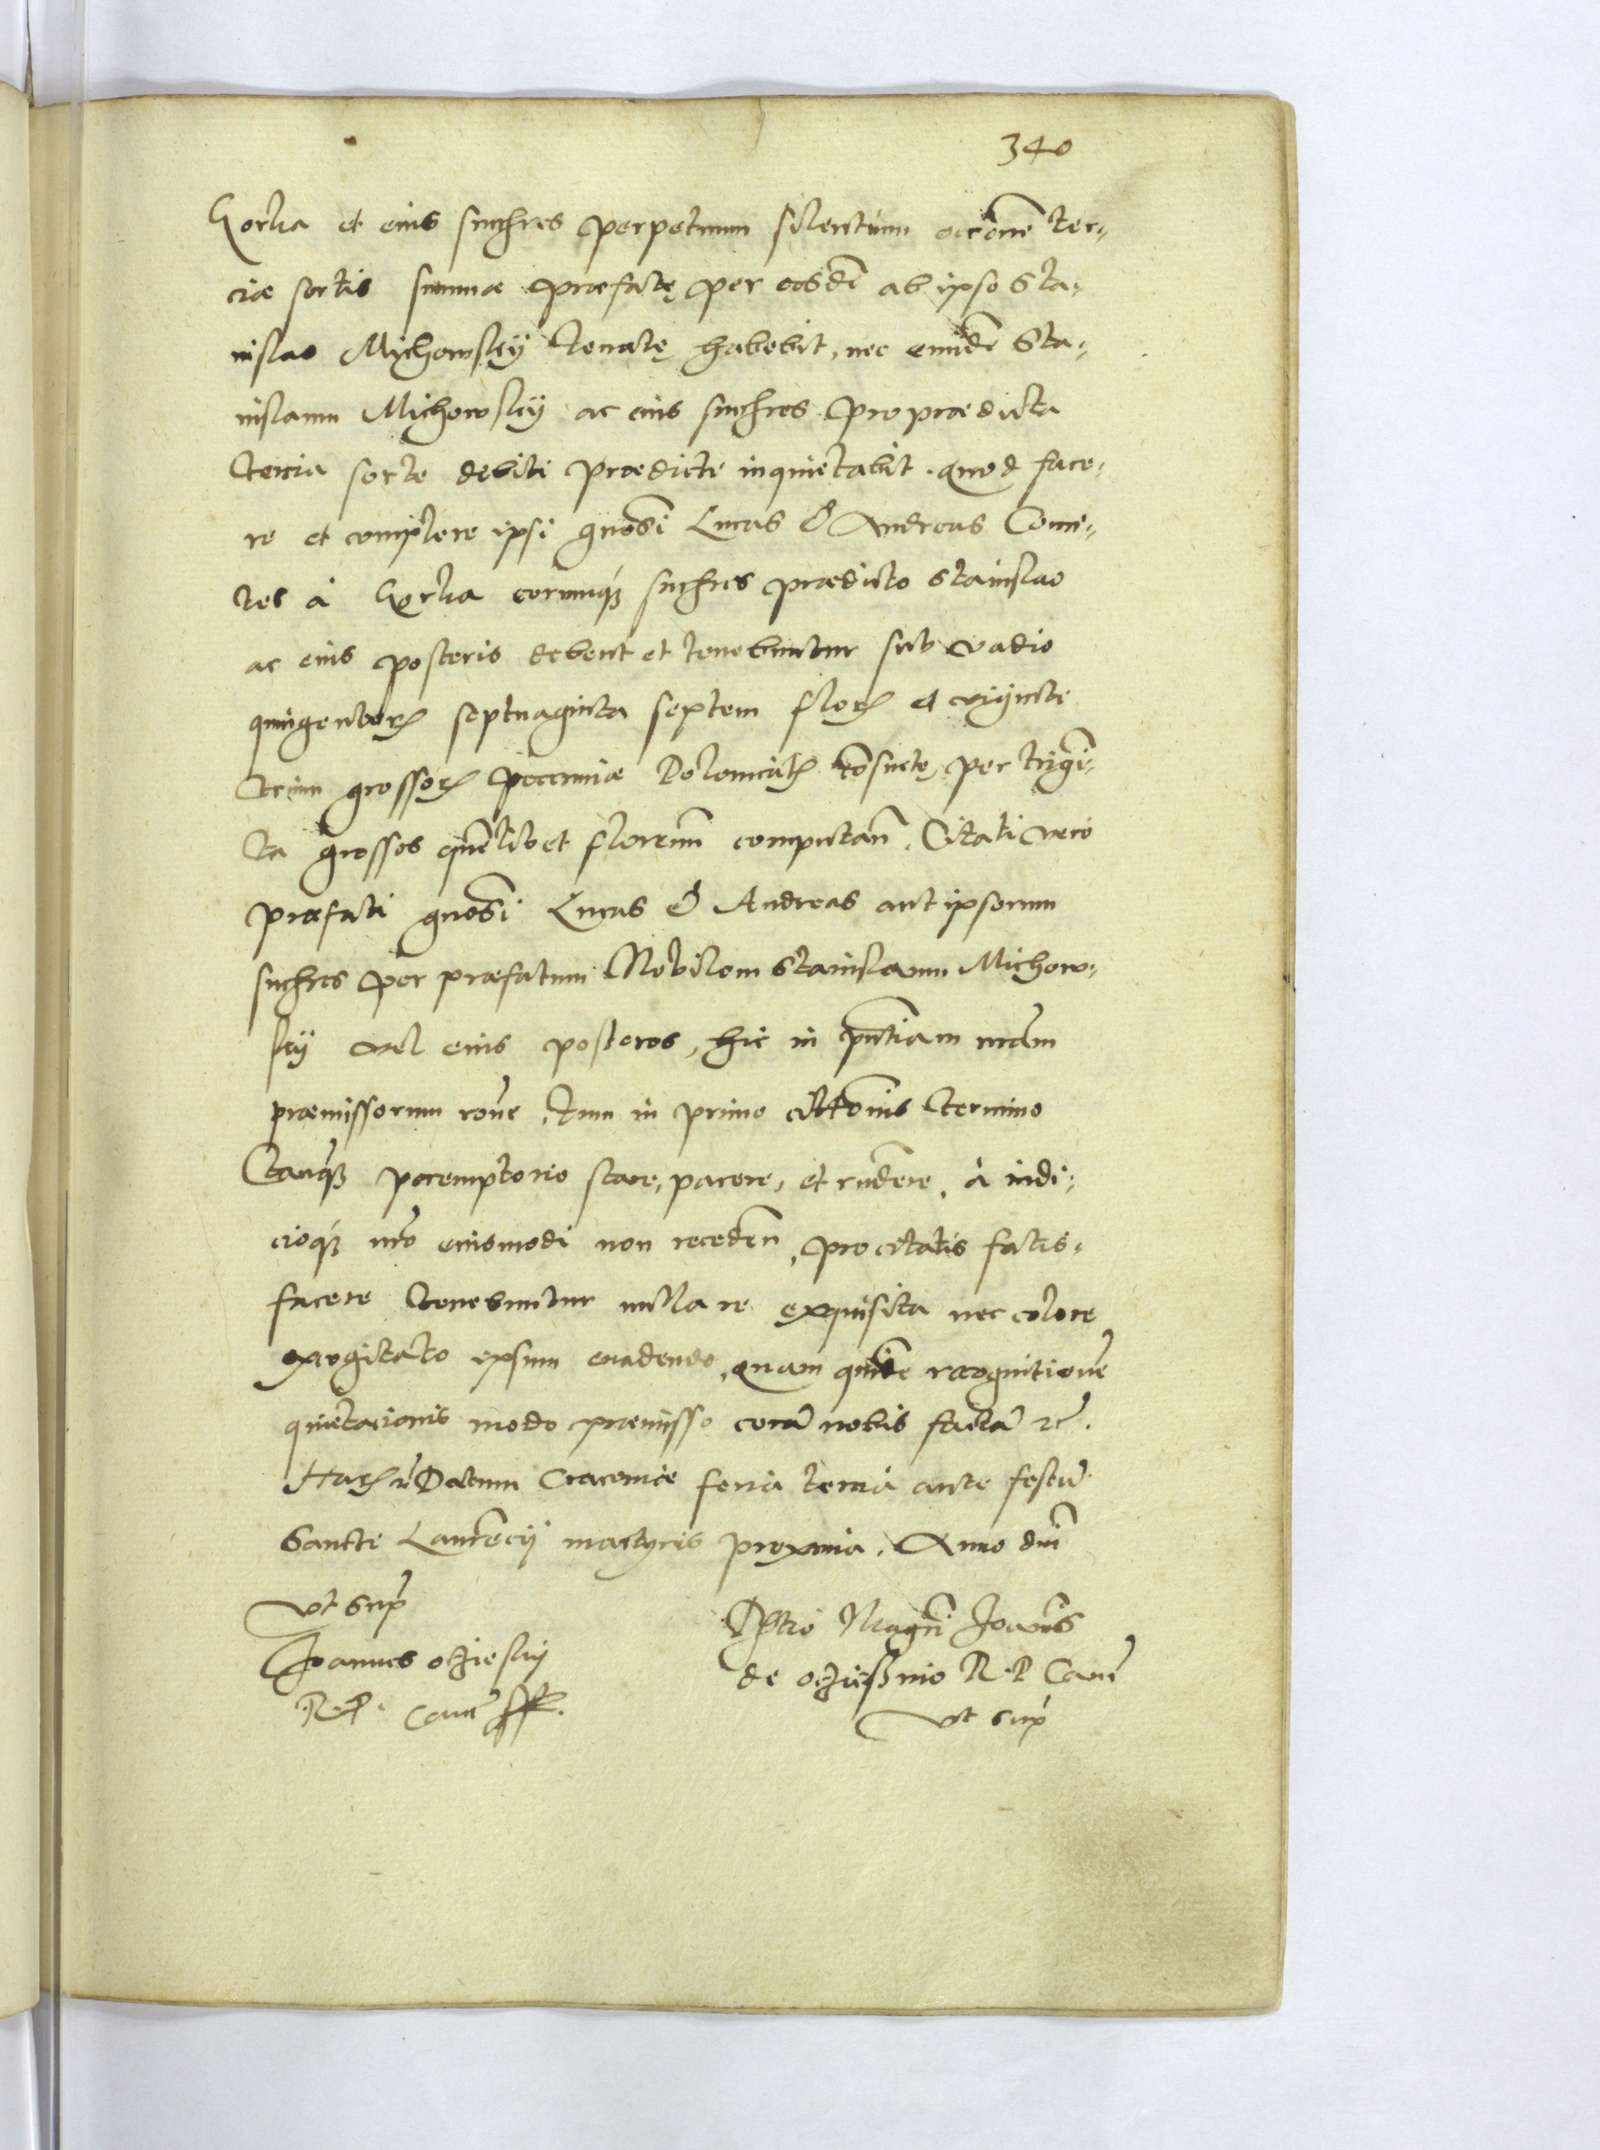 340
Gorka et eius succres perpetuum silentium occõne ter-
ciæ sortis summæ præfatę per eosdẽ ab ipso Sta-
nislao Michowsky leuatę habebit, nec eundẽ Sta-
nislaum Michowsky ac eius succres pro prædicta
tercia sorte debiti prædicti inquietabit. quod face-
re et complere ipsi gnosi Lucas & Andreas Comi-
tes à Gorka eorumq́ succres prædicto Stanislao
ac eius posteris debent et tenebuntur sub vadio
quingentorꝝ septuaginta septem florꝝ et viginti
trium grossorꝝ pecuniæ Polonicalꝝ cõsuetę per trigĩ-
ta grossos quẽlibet florenũ computań. Citati vero
præfati gnosi Lucas & Andreas aut ipsorum
succres per præfatum Nobilem Stanislaum Michow-
sky vel eius posteros, hic in pñtiam nrãm
præmissorum rone, tum in primo citõnis termino
tanq̃ peremptorio stare, parere, et rñdere, à iudi-
cioq́ nro eiusmodi non recedeń, pro citatis satis-
facere tenebuntur nulla re exquisita nec colore
excogitato ipsum euadendo, quam quidẽ recognitionẽ
quietacionis modo præmisso corã nobis factã ꝛc.
Harꝝ ꝛc Datum Cracouiæ feria tercia ante festũ
Sancti Laurẽcij martyris proxima. Anno dni
vt supr
Joannes ocziesky
R. P. Canc̃ sst.
Rltio Magci Joannis
de oczießino R. P. Canc̃
vt supr